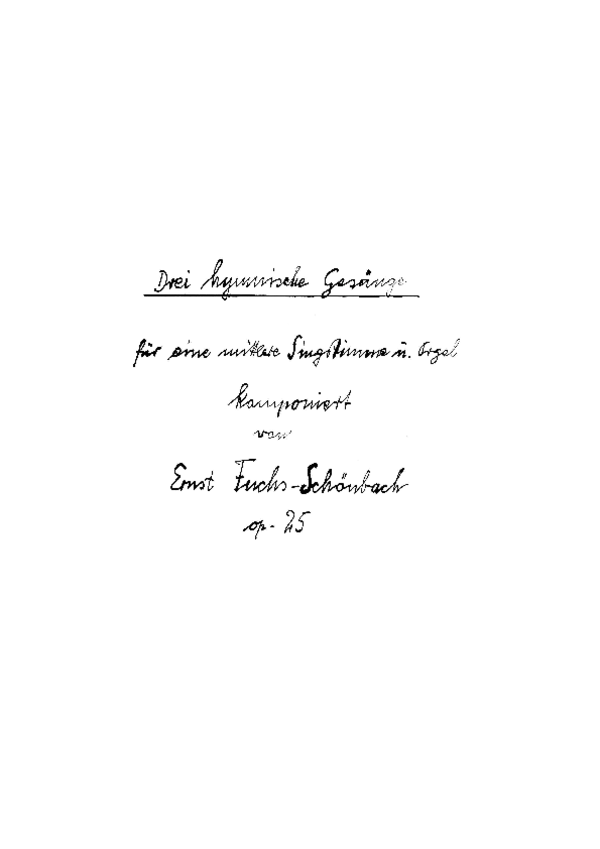 Drei hymnische Gesänge
für eine mittlere Singstimme u. Orgel
komponiert
von
Ernst Fuchs-Schönbach
op. 25